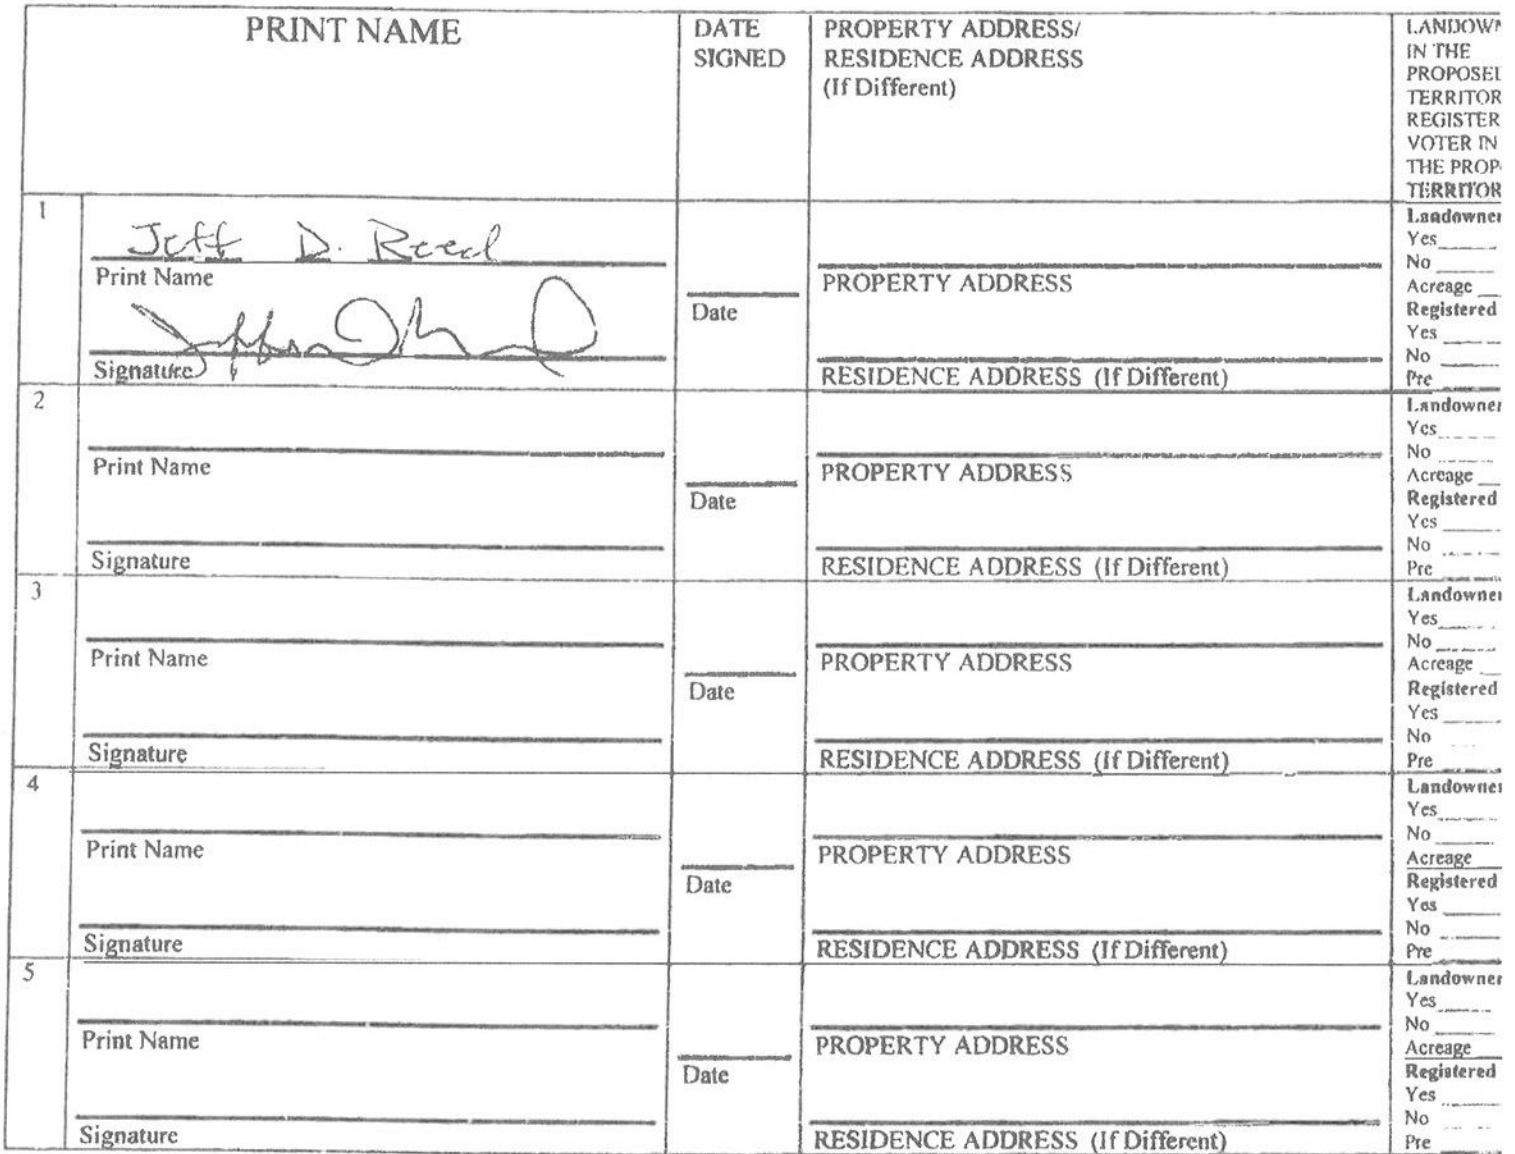 PRINT NAME
DATE
SIGNED
PROPERTY ADDRESS/
RESIDENCE ADDRESS
(If Different)
LANDOWN
IN THE
PROPOSED
TERRITOR
REGISTER
VOTER IN
THE PROP
TERRITOR
1
Jeff D. Reed
Print Name
Signature
Date
PROPERTY ADDRESS
RESIDENCE ADDRESS (If Different)
Landowner
Yes
No
Acreage
Registered
Yes
No
Pre
2
Print Name
Signature
Date
PROPERTY ADDRESS
RESIDENCE ADDRESS (If Different)
Landowner
Yes
No
Acreage
Registered
Yes
No
Pre
3
Print Name
Signature
Date
PROPERTY ADDRESS
RESIDENCE ADDRESS (If Different)
Landowner
Yes
No
Acreage
Registered
Yes
No
Pre
4
Print Name
Signature
Date
PROPERTY ADDRESS
RESIDENCE ADDRESS (If Different)
Landowner
Yes
No
Acreage
Registered
Yes
No
Pre
5
Print Name
Signature
Date
PROPERTY ADDRESS
RESIDENCE ADDRESS (If Different)
Landowner
Yes
No
Acreage
Registered
Yes
No
Pre